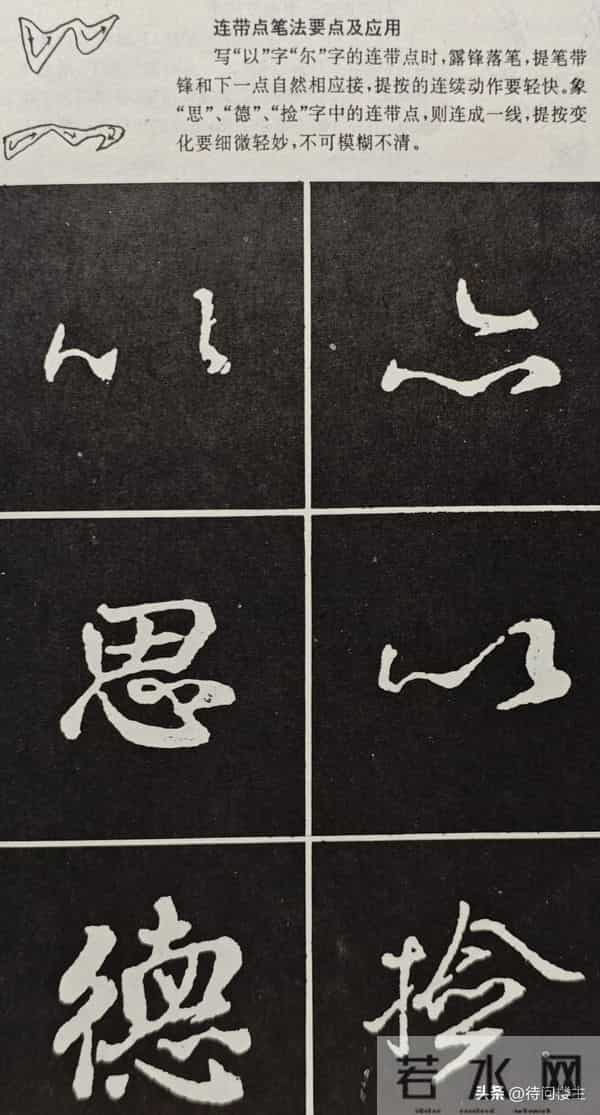 连带点笔法要点及应用
写“以”字“尔”字的连带点时,露锋落笔,提笔带
锋和下一点自然相应接,提按的连续动作要轻快。象
“思”、“德”、“捡”字中的连带点,则连成一线,提按变
化要细微轻妙,不可模糊不清。
以 尔
思 以
德 捡
若水网
头条 @待问楼主